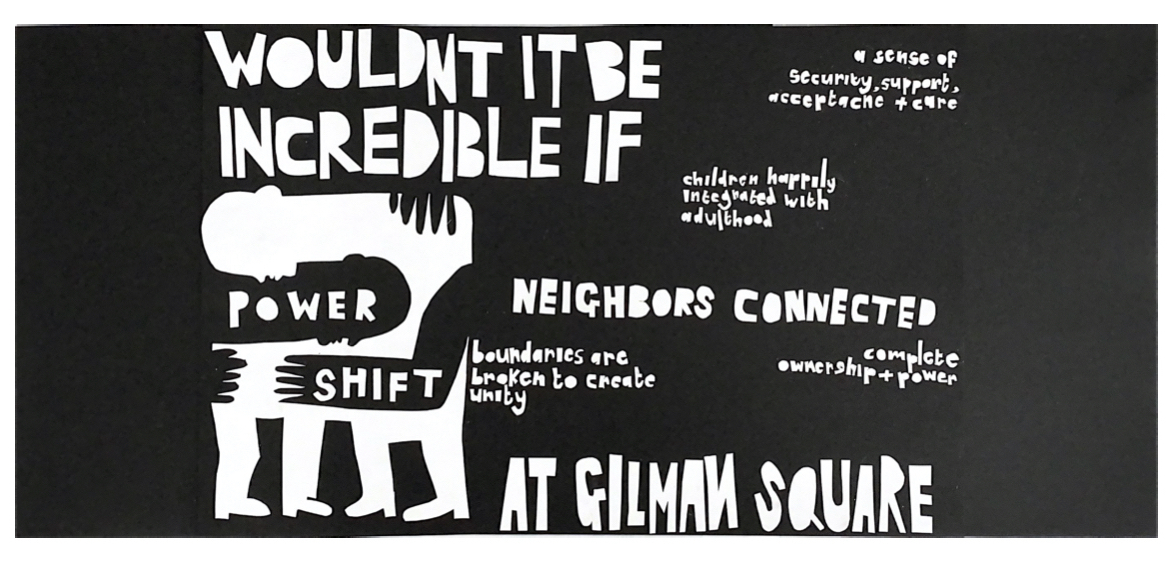 WOULDNT IT BE
INCREDIBLE IF
a sense of
security, support,
acceptache + care
children happily
integrated with
adulthood
POWER
SHIFT
NEIGHBORS CONNECTED
boundaries are
broken to create
unity
complete
ownership + power
AT GILMAN SQUARE